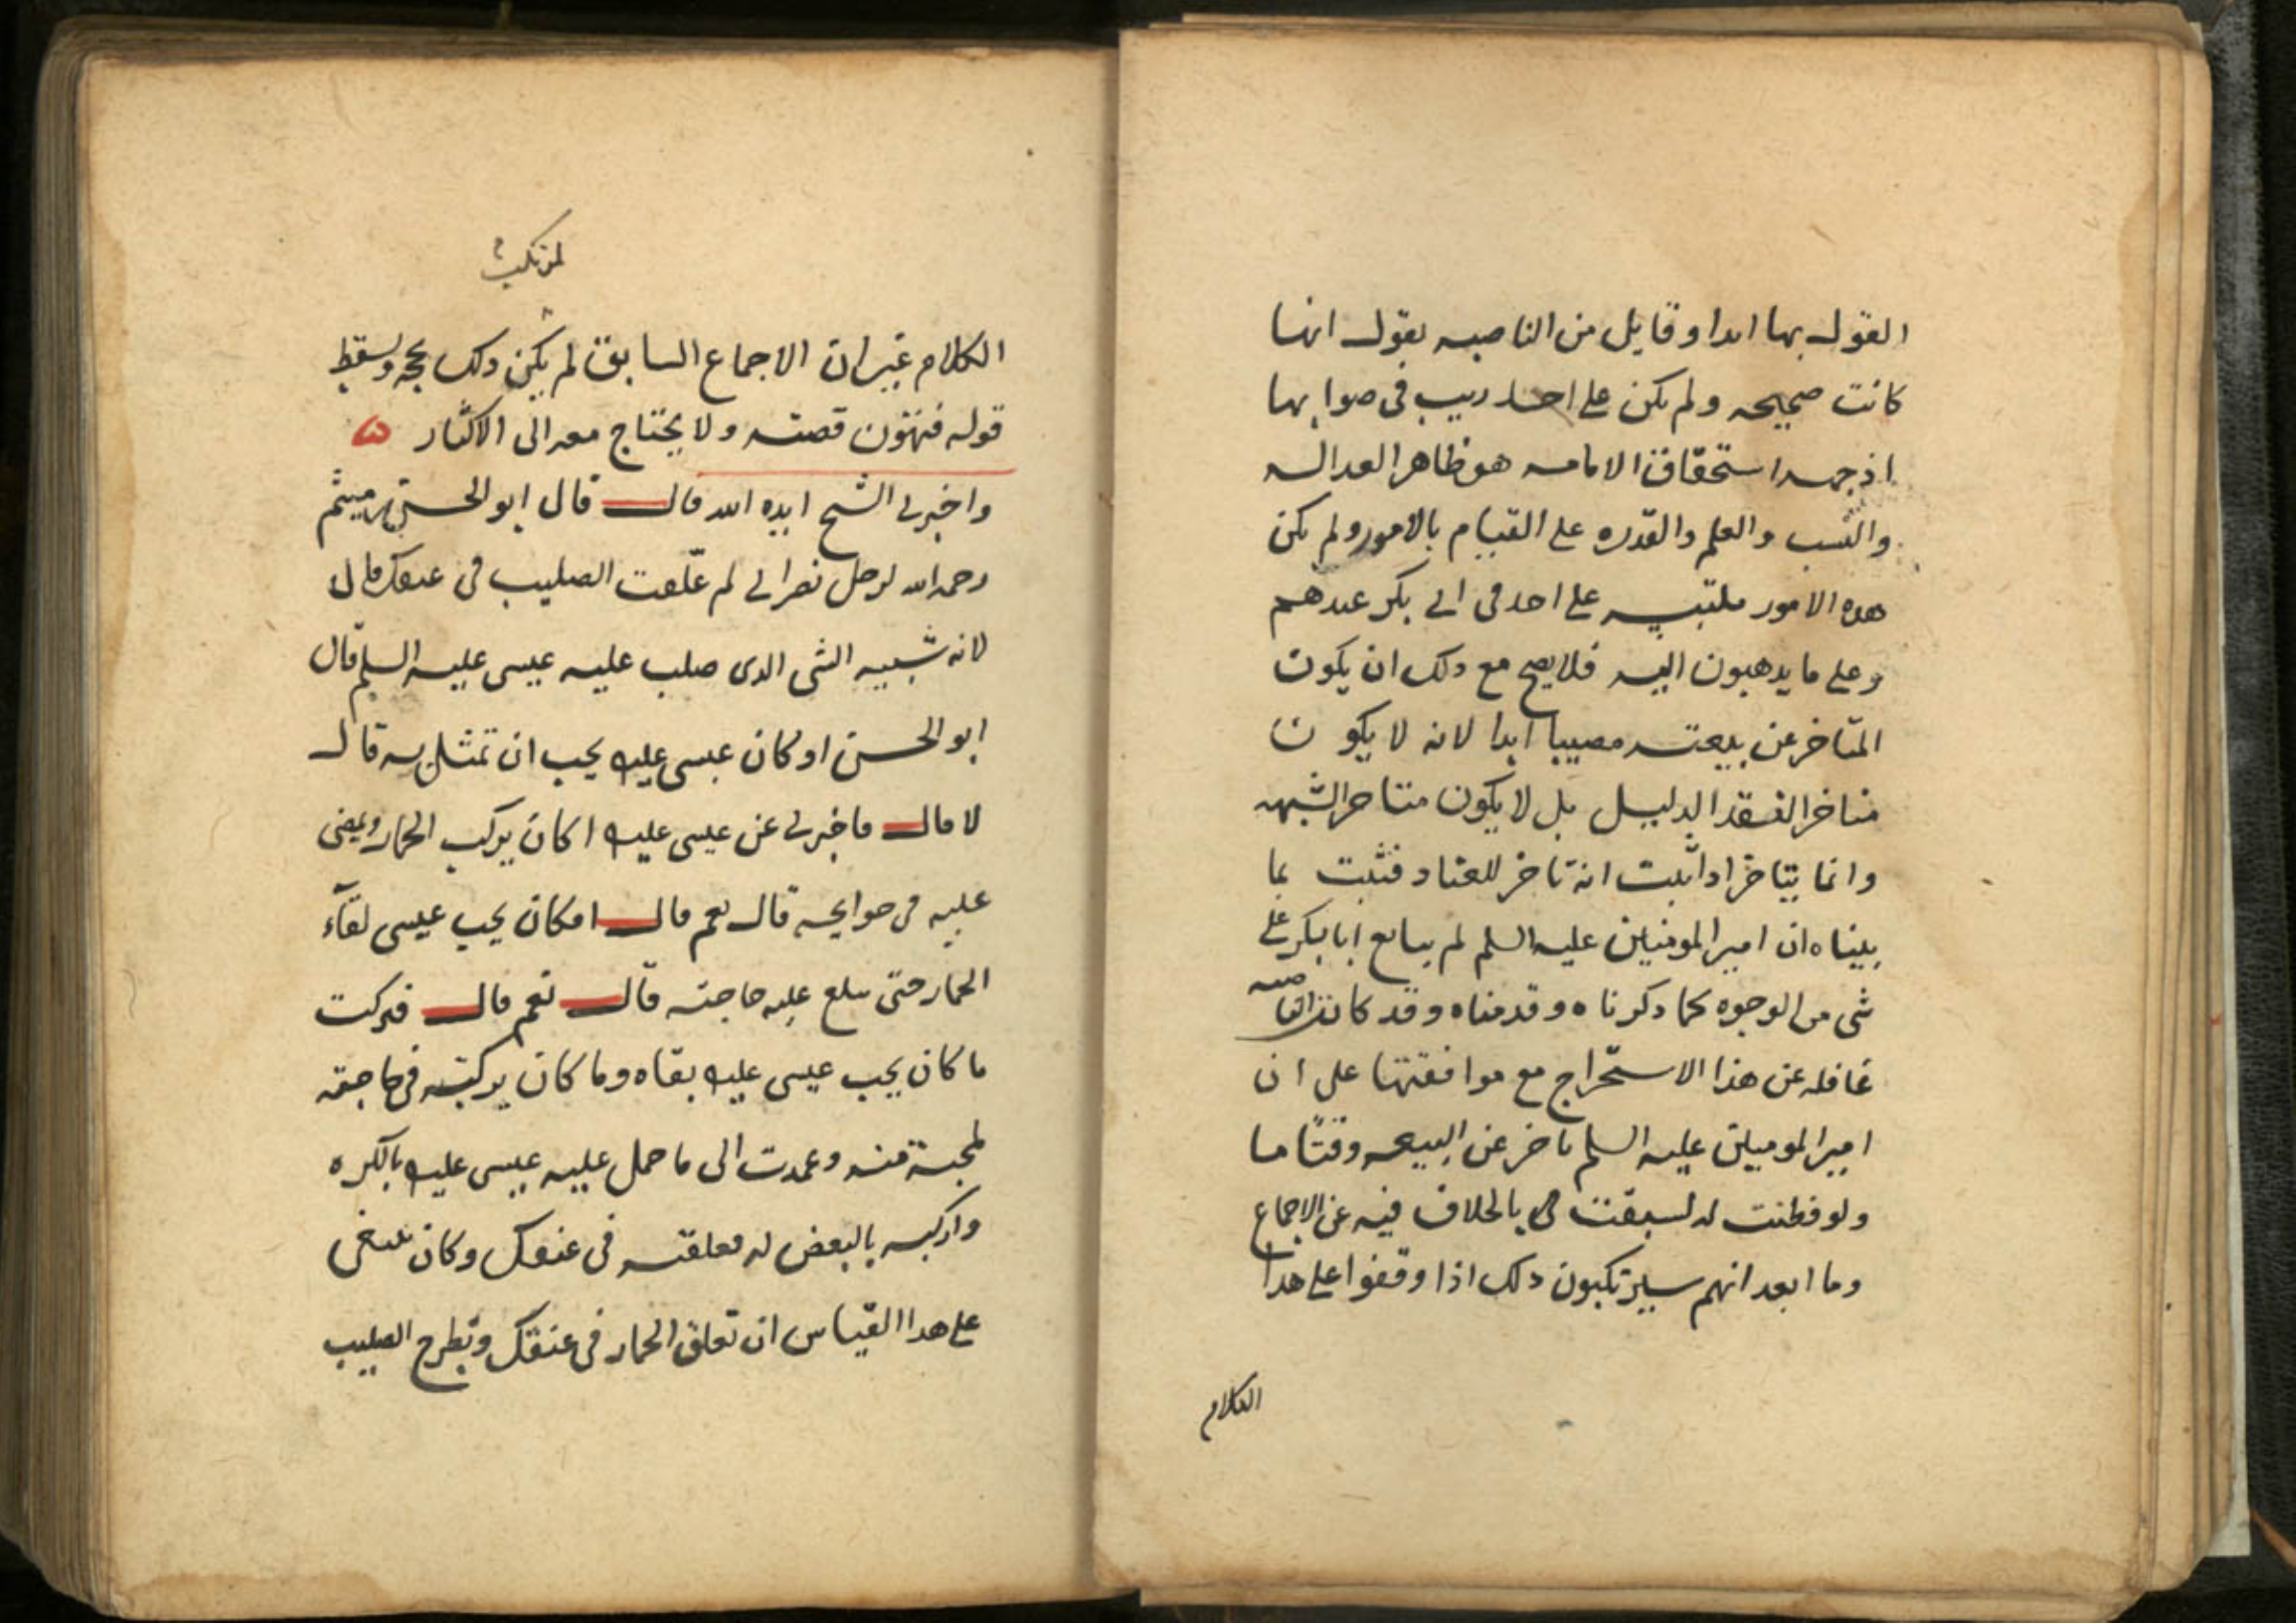 القول بها ابدا وقايل من الناصبه يقول انها
كانت صحيحه ولم يكن على احد ريب في صوابها
اذ جهه استحقاق الامامه هو ظاهر العداله
والنسب والعلم والقدره على القيام بالامور ولم يكن
هذه الامور ملتبسه على احد في ابي بكر عندهم
وعلى ما يذهبون اليه فلا يصح مع ذلك ان يكون
المتاخر عن بيعته مصيبا ابدا لانه لا يكون
متاخرا لفقد الدليل بل لا يكون متاخرا لشبهه
وانما يتاخر اذا ثبت انه تاخر للعناد فثبت بما
بيناه ان امير المومنين عليه السلم لم يبايع ابا بكر على
شي من الوجوه كما ذكرناه وقدمناه وقد كانت الناصبه
غافله عن هذا الاستخراج مع موافقتها على ان
امير المومنين عليه السلم تاخر عن البيعه وقتًا ما
ولو فطنت له لسبقت الى بالخلاف فيه عن الاجماع
وما ابعد انهم سيرتكبون ذلك اذا وقفوا على هذا
الكلام
لمرتكب
الكلام غير ان الاجماع السابق لم يكن ذلك بحجه ويسقط
قوله فنهون قصته ولا يحتاج معه الى الاكثار
واخبرني الشيخ ايده الله قال قال ابو الحسن بن ميثم
رحمه الله لرجل نصراني لم علّقت الصليب في عنقك قال
لانه شبيه الشى الذى صلب عليه عيسى عليه السلم قال
ابو الحسن اوكان عيسى عليه يحب ان تمثل به قال
لا قال فاخبرني عن عيسى عليه اكان يركب الحمار ويمضى
عليه في حوايجه قال نعم قال افكان يحب عيسى لقآء
الحمار حتى يبلغ عليه حاجته قال نعم قال فتركت
ما كان يحب عيسى عليه بقاه وما كان يركبه في حاجته
لمحبة منه وعمدت الى ما حمل عليه عيسى عليه بالكره
واركبه بالبغض له فعلقته في عنقك وكان ينبغى
على هذا القياس ان تعلق الحمار في عنقك وتطرح الصليب